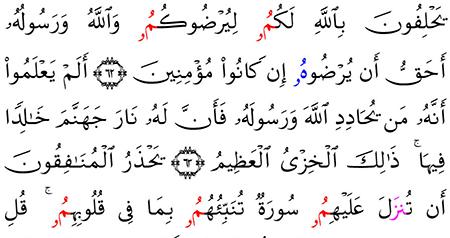 يَحْلِفُونَ بِٱللَّهِ لَكُمُۥ لِيُرْضُوكُمُۥ وَٱللَّهُ وَرَسُولُهُۥ
أَحَقُّ أَن يُرْضُوهُۥ إِن كَانُوا۟ مُؤْمِنِينَ ۝٦٢ أَلَمْ يَعْلَمُوٓا۟
أَنَّهُۥ مَن يُحَادِدِ ٱللَّهَ وَرَسُولَهُۥ فَأَنَّ لَهُۥ نَارَ جَهَنَّمَ خَٰلِدًا
فِيهَا ۚ ذَٰلِكَ ٱلْخِزْىُ ٱلْعَظِيمُ ۝٦٣ يَحْذَرُ ٱلْمُنَٰفِقُونَ
أَن تُنزَلَ عَلَيْهِمُۥ سُورَةٌ تُنَبِّئُهُمُۥ بِمَا فِى قُلُوبِهِمُۥ ۚ قُلِ